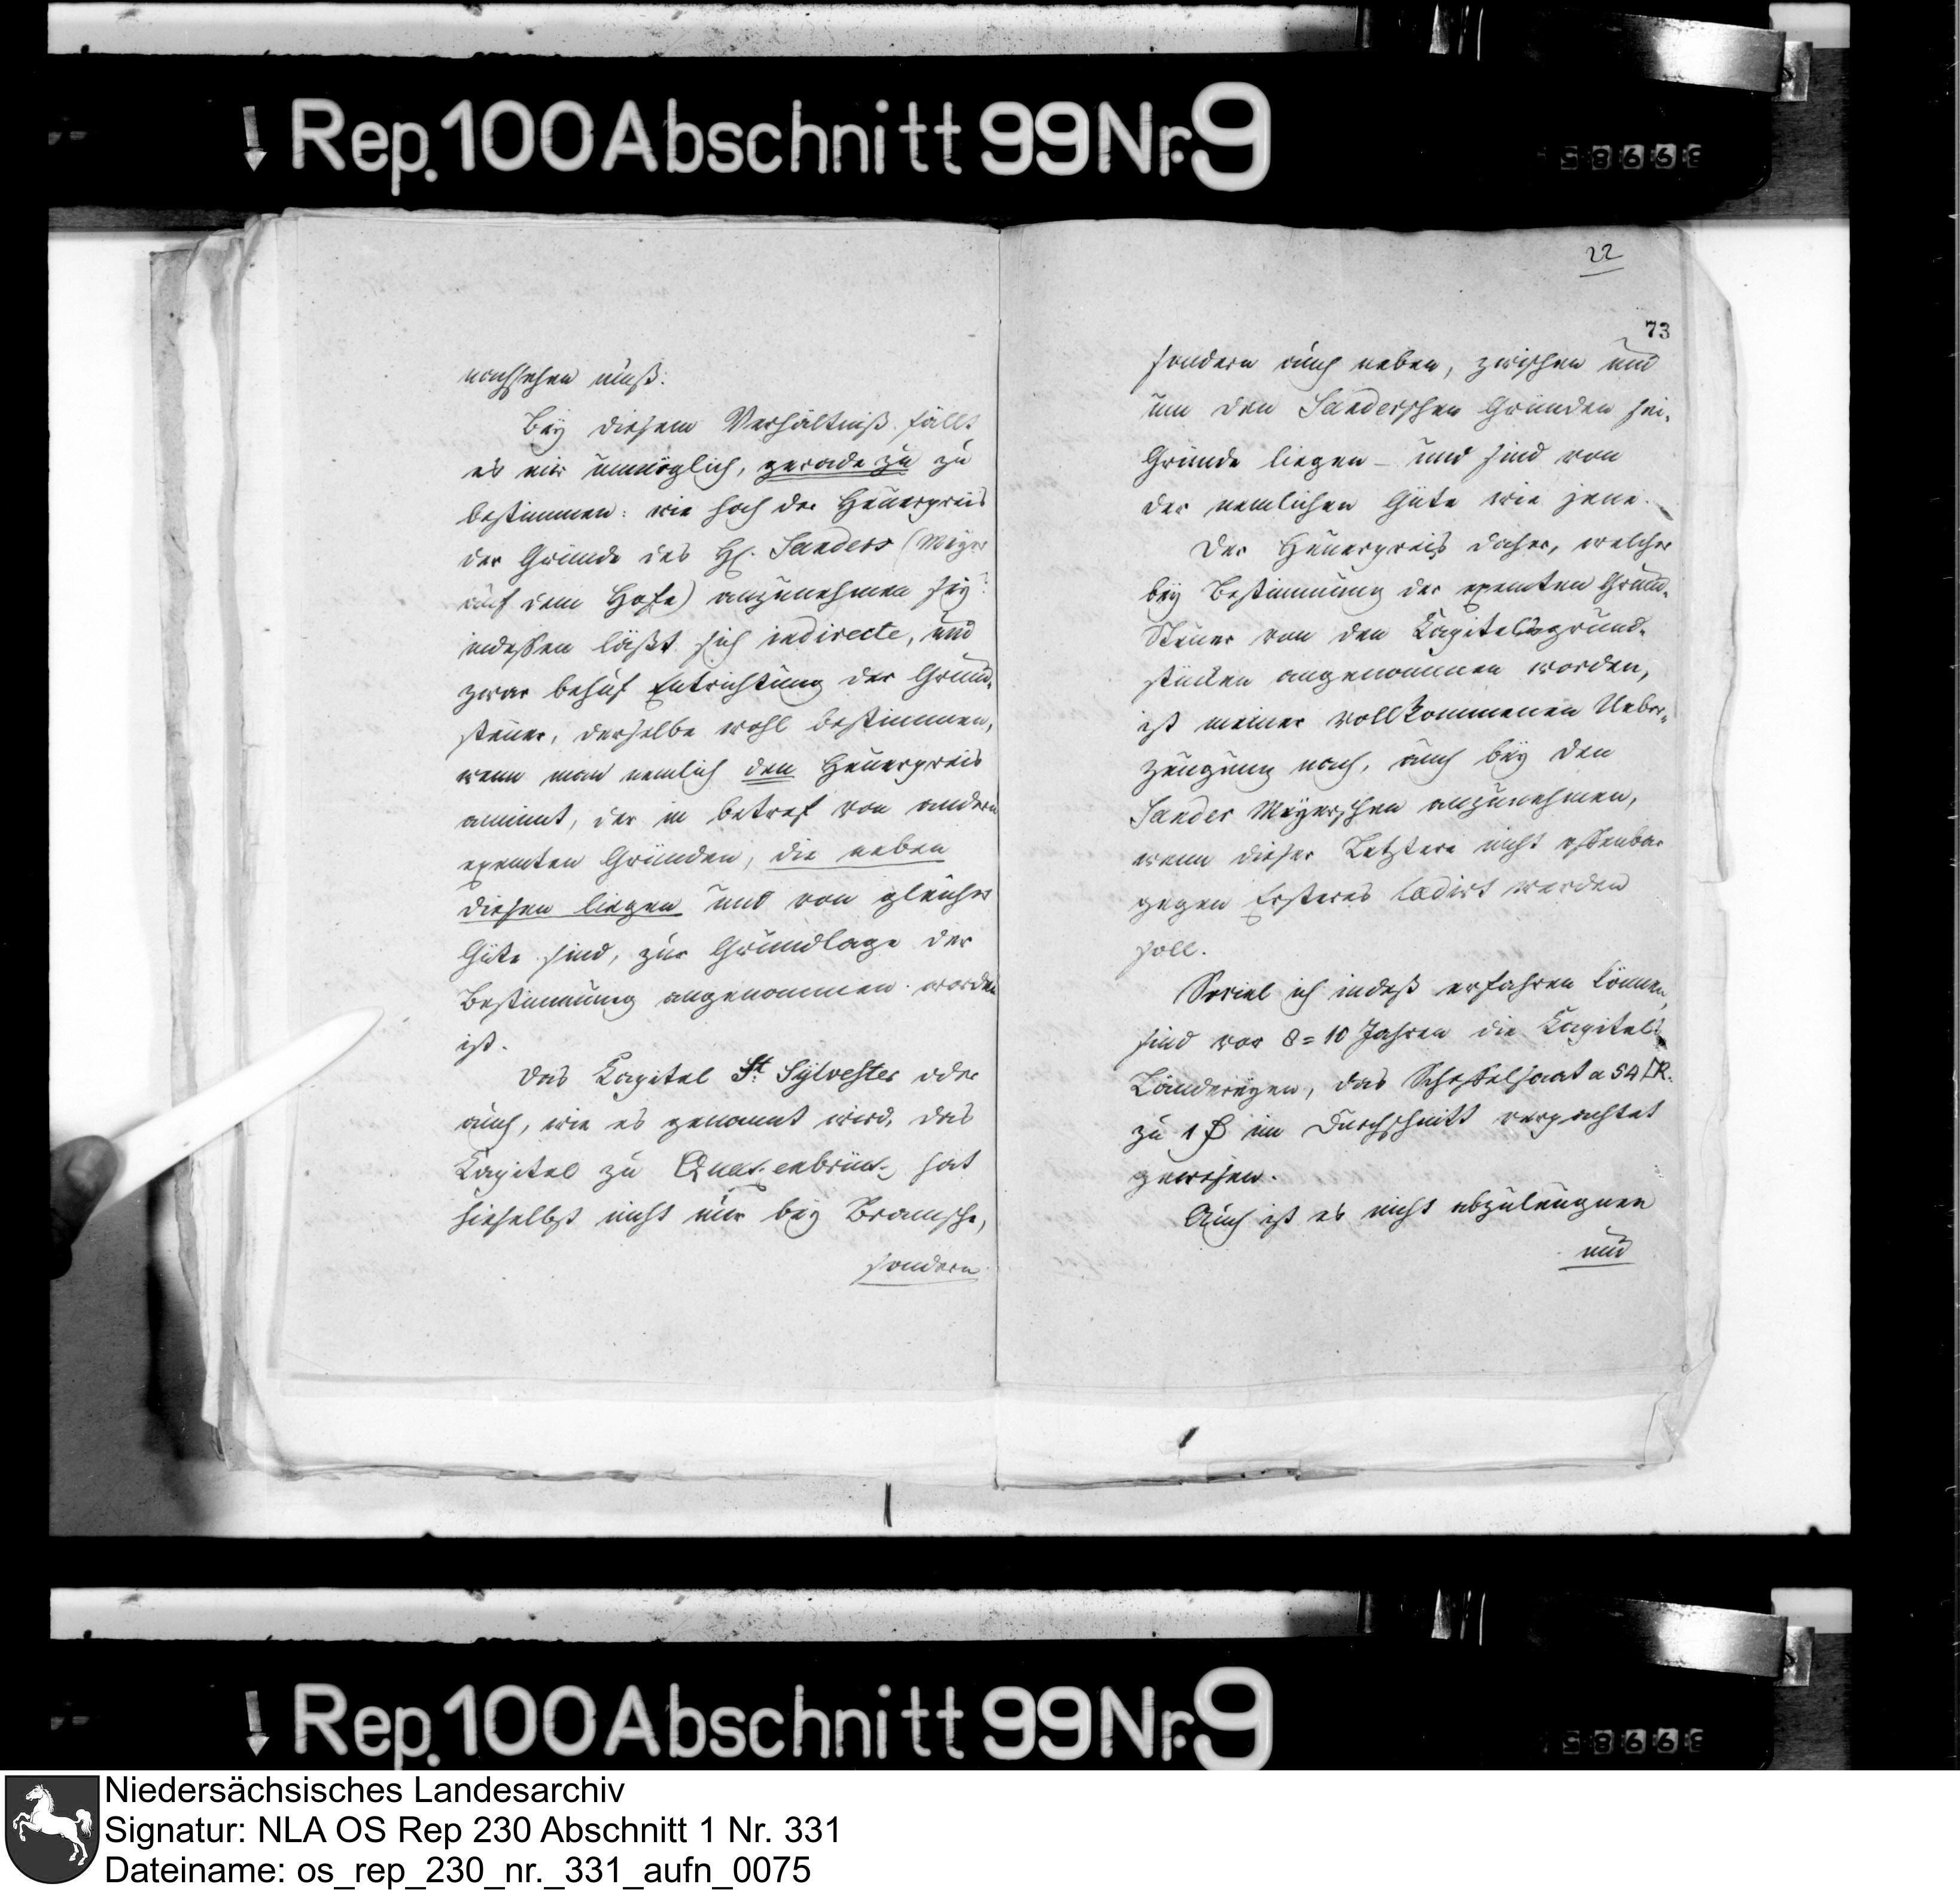 Rep. 100 Abschnitt 99 Nr. 9
58668
nachsehen muß.
Bey diesem Verhältniß fällt
es mir unmöglich, gerade zu zu
bestimmen: wie hoch der Heuerpreis
der Gründe des H. Sanders (Meyer
auf dem Hofe) anzunehmen sey?
indessen läßt sich indirecte, und
zwar behuf Entrichtung der Grund-
steuer, derselbe wohl bestimmen,
wenn man nemlich den Heuerpreis
annimt, der in betref von andern
exemten Gründen, die neben
diesen liegen und von gleicher
Güte sind, zur Grundlage der
Bestimmung angenommen worden
ist.
Das Kapitel St. Sylvester oder
auch, wie es genannt wird, das
Kapitel zu Quakenbrück, hat
hieselbst nicht nur bey Bramsche,
sondern
22
73
sondern auch neben, zwischen und
um den Sanderschen Gründen
Gründe liegen – und sind von
der nemlichen Güte wie jene.
Der Heuerpreis daher, welcher
bey Bestimmung der exemten Grund-
Steuer von den Kapitelsgrund-
stücken angenommen worden,
ist meiner vollkommenen Ueber-
zeugung nach, auch bey den
Sander Meyerschen anzunehmen,
wenn dieser Letztere nicht offenbar
gegen Ersteres lädirt werden
soll.
Soviel ich indeß erfahren können,
sind vor 8=10 Jahren die Kapitels
Ländereyen, das Scheffelsaat a 54 □R.
zu 1 im Durchschnitt verpachtet
gewesen.
Auch ist es nicht abzuleugnen
und
Rep. 100 Abschnitt 99 Nr. 9
58668
Niedersächsisches Landesarchiv
Signatur: NLA OS Rep 230 Abschnitt 1 Nr. 331
Dateiname: os_rep_230_nr._331_aufn_0075